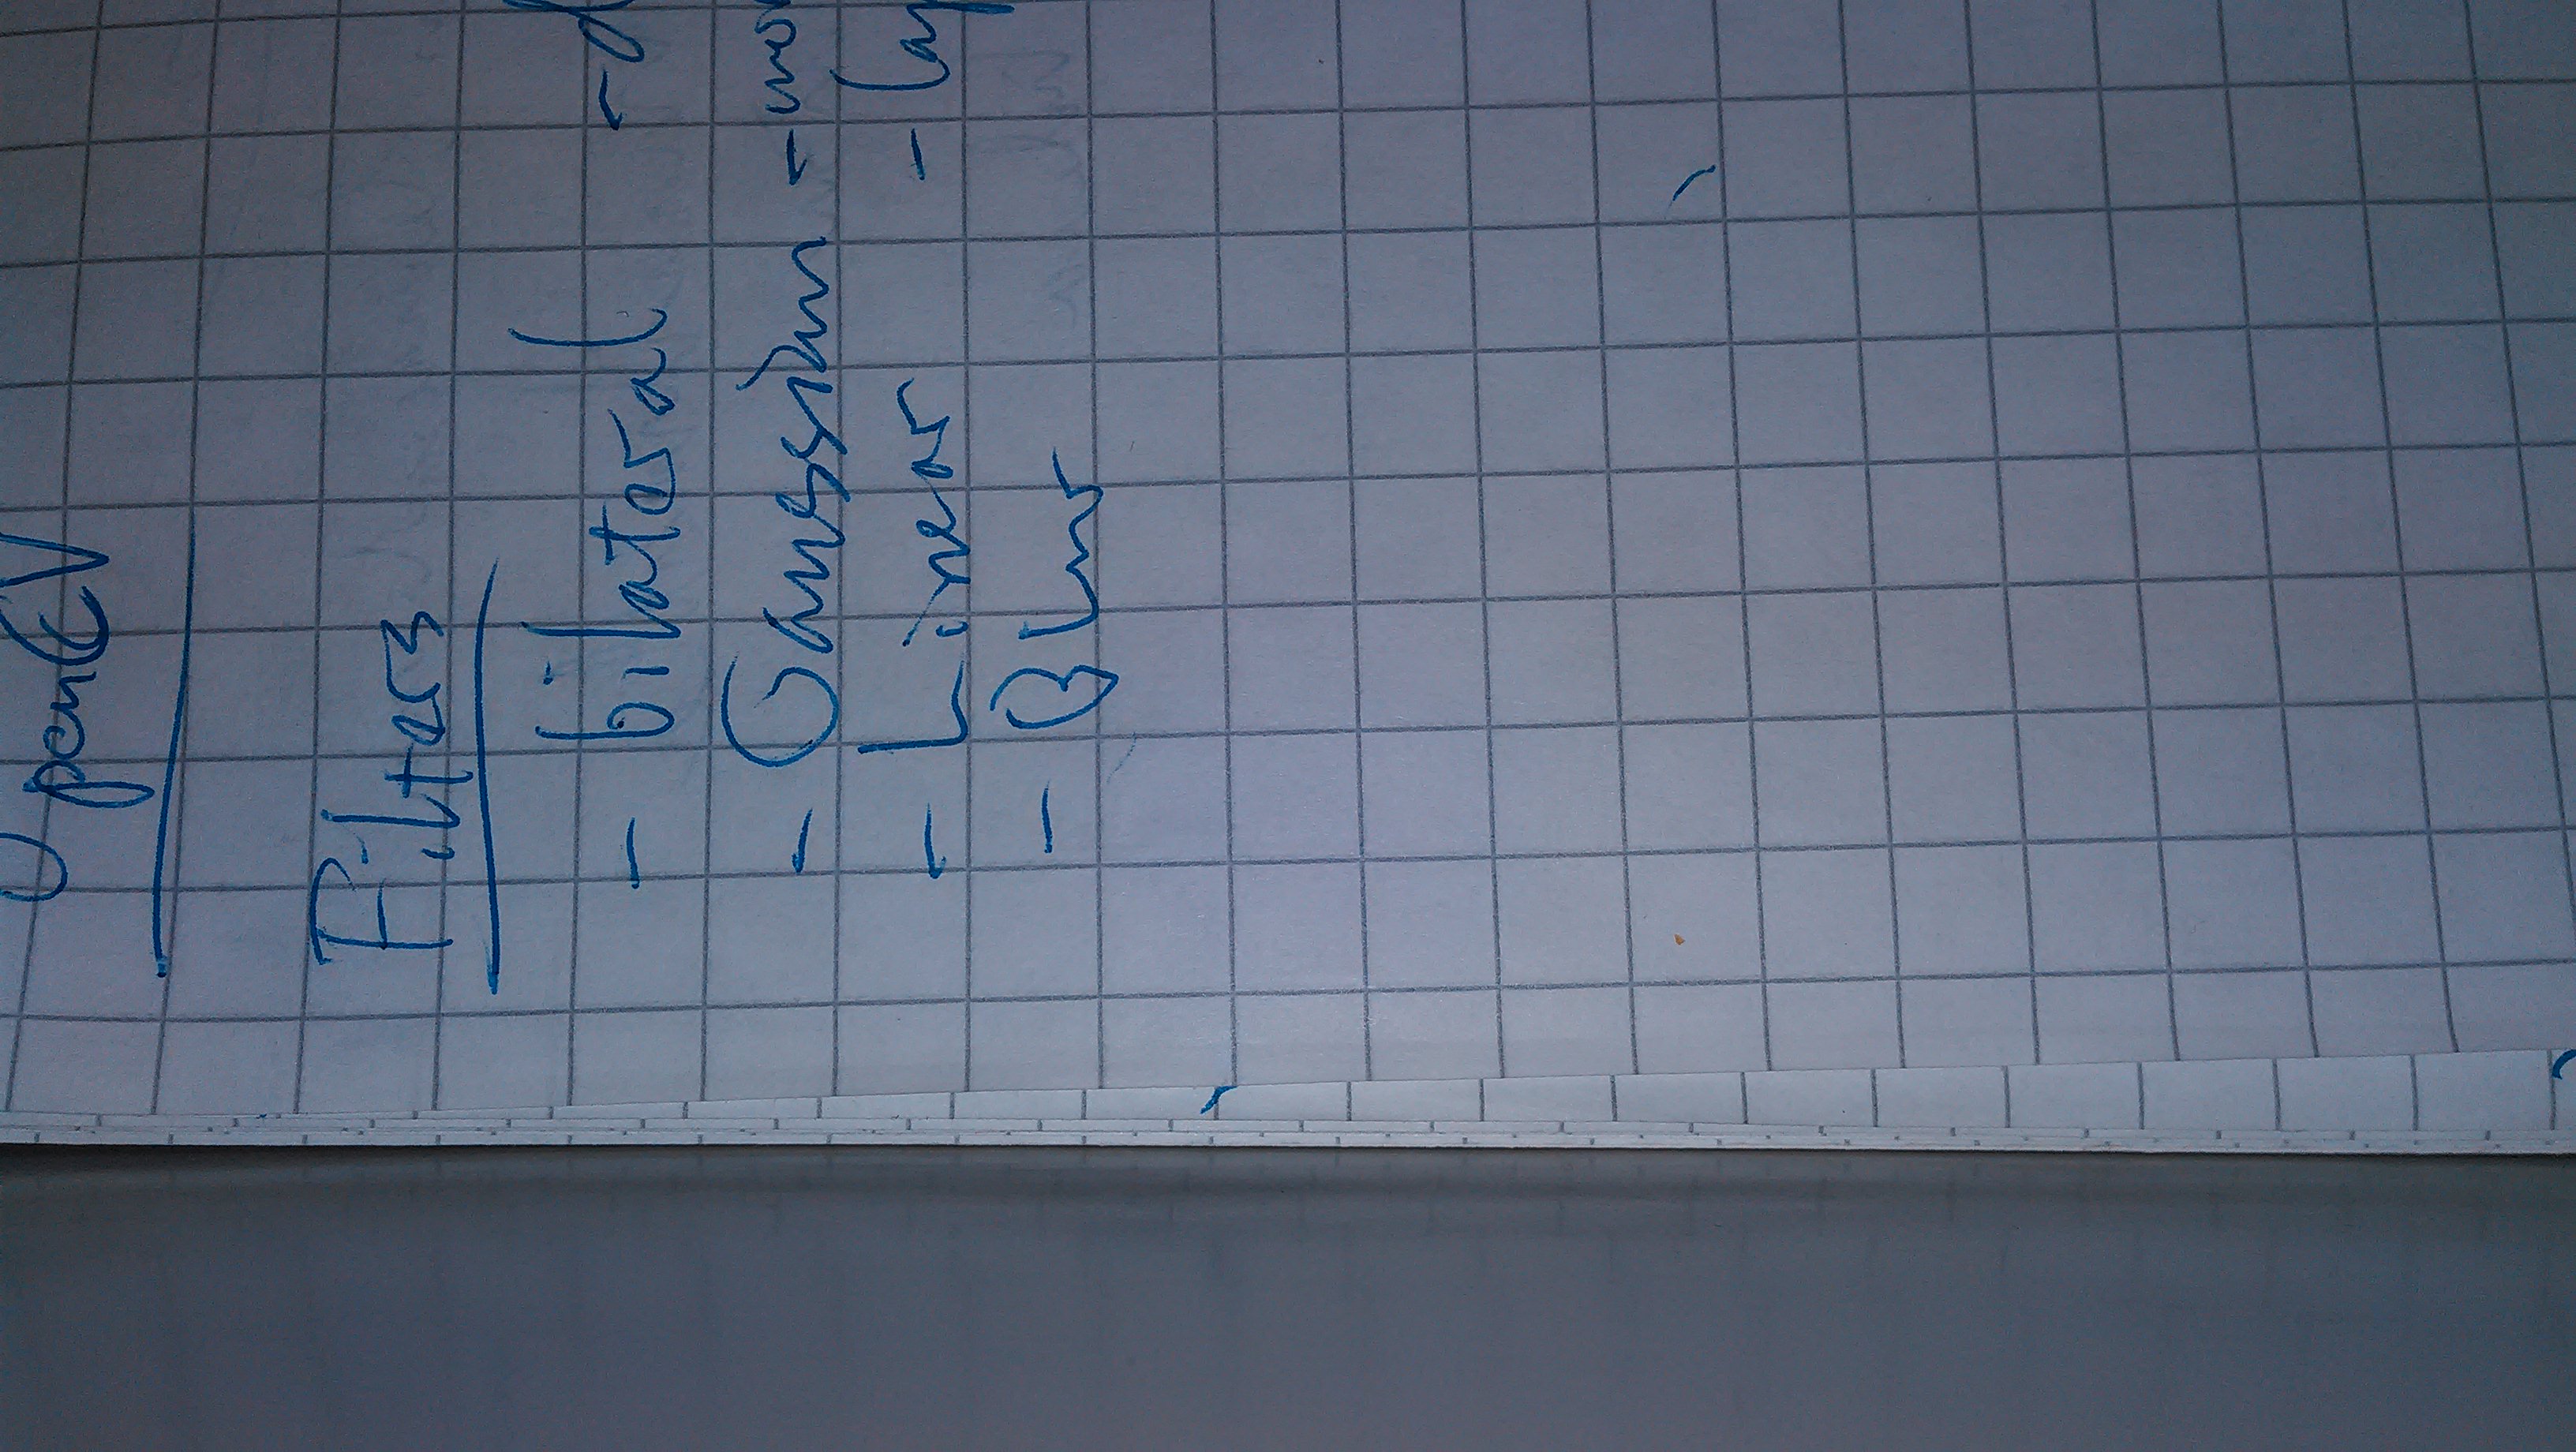 OpenCV
Filters
- bilateral -
- Gaussian -
- Linear -
- Blur